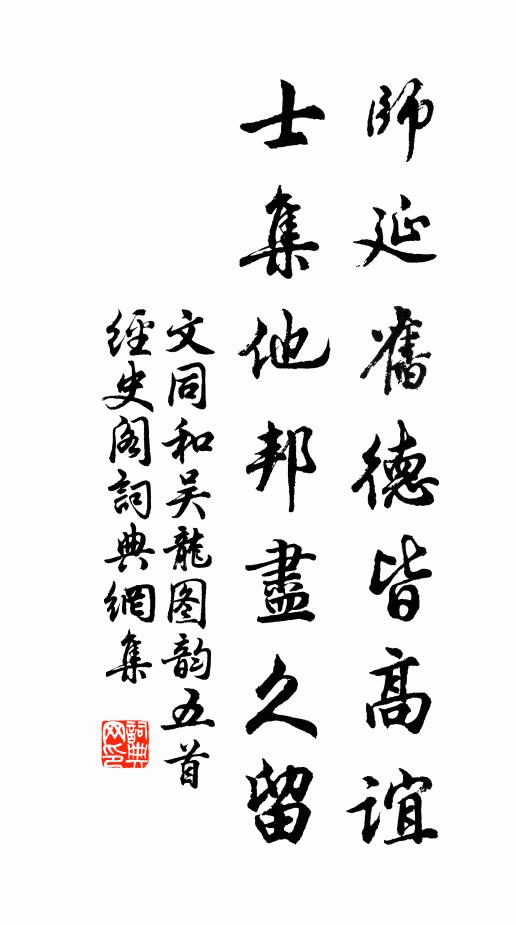 師延舊德皆高誼
士集他邦盡久留
文同和吴龍图韵五首
經史阁詞典網集
詞典网印